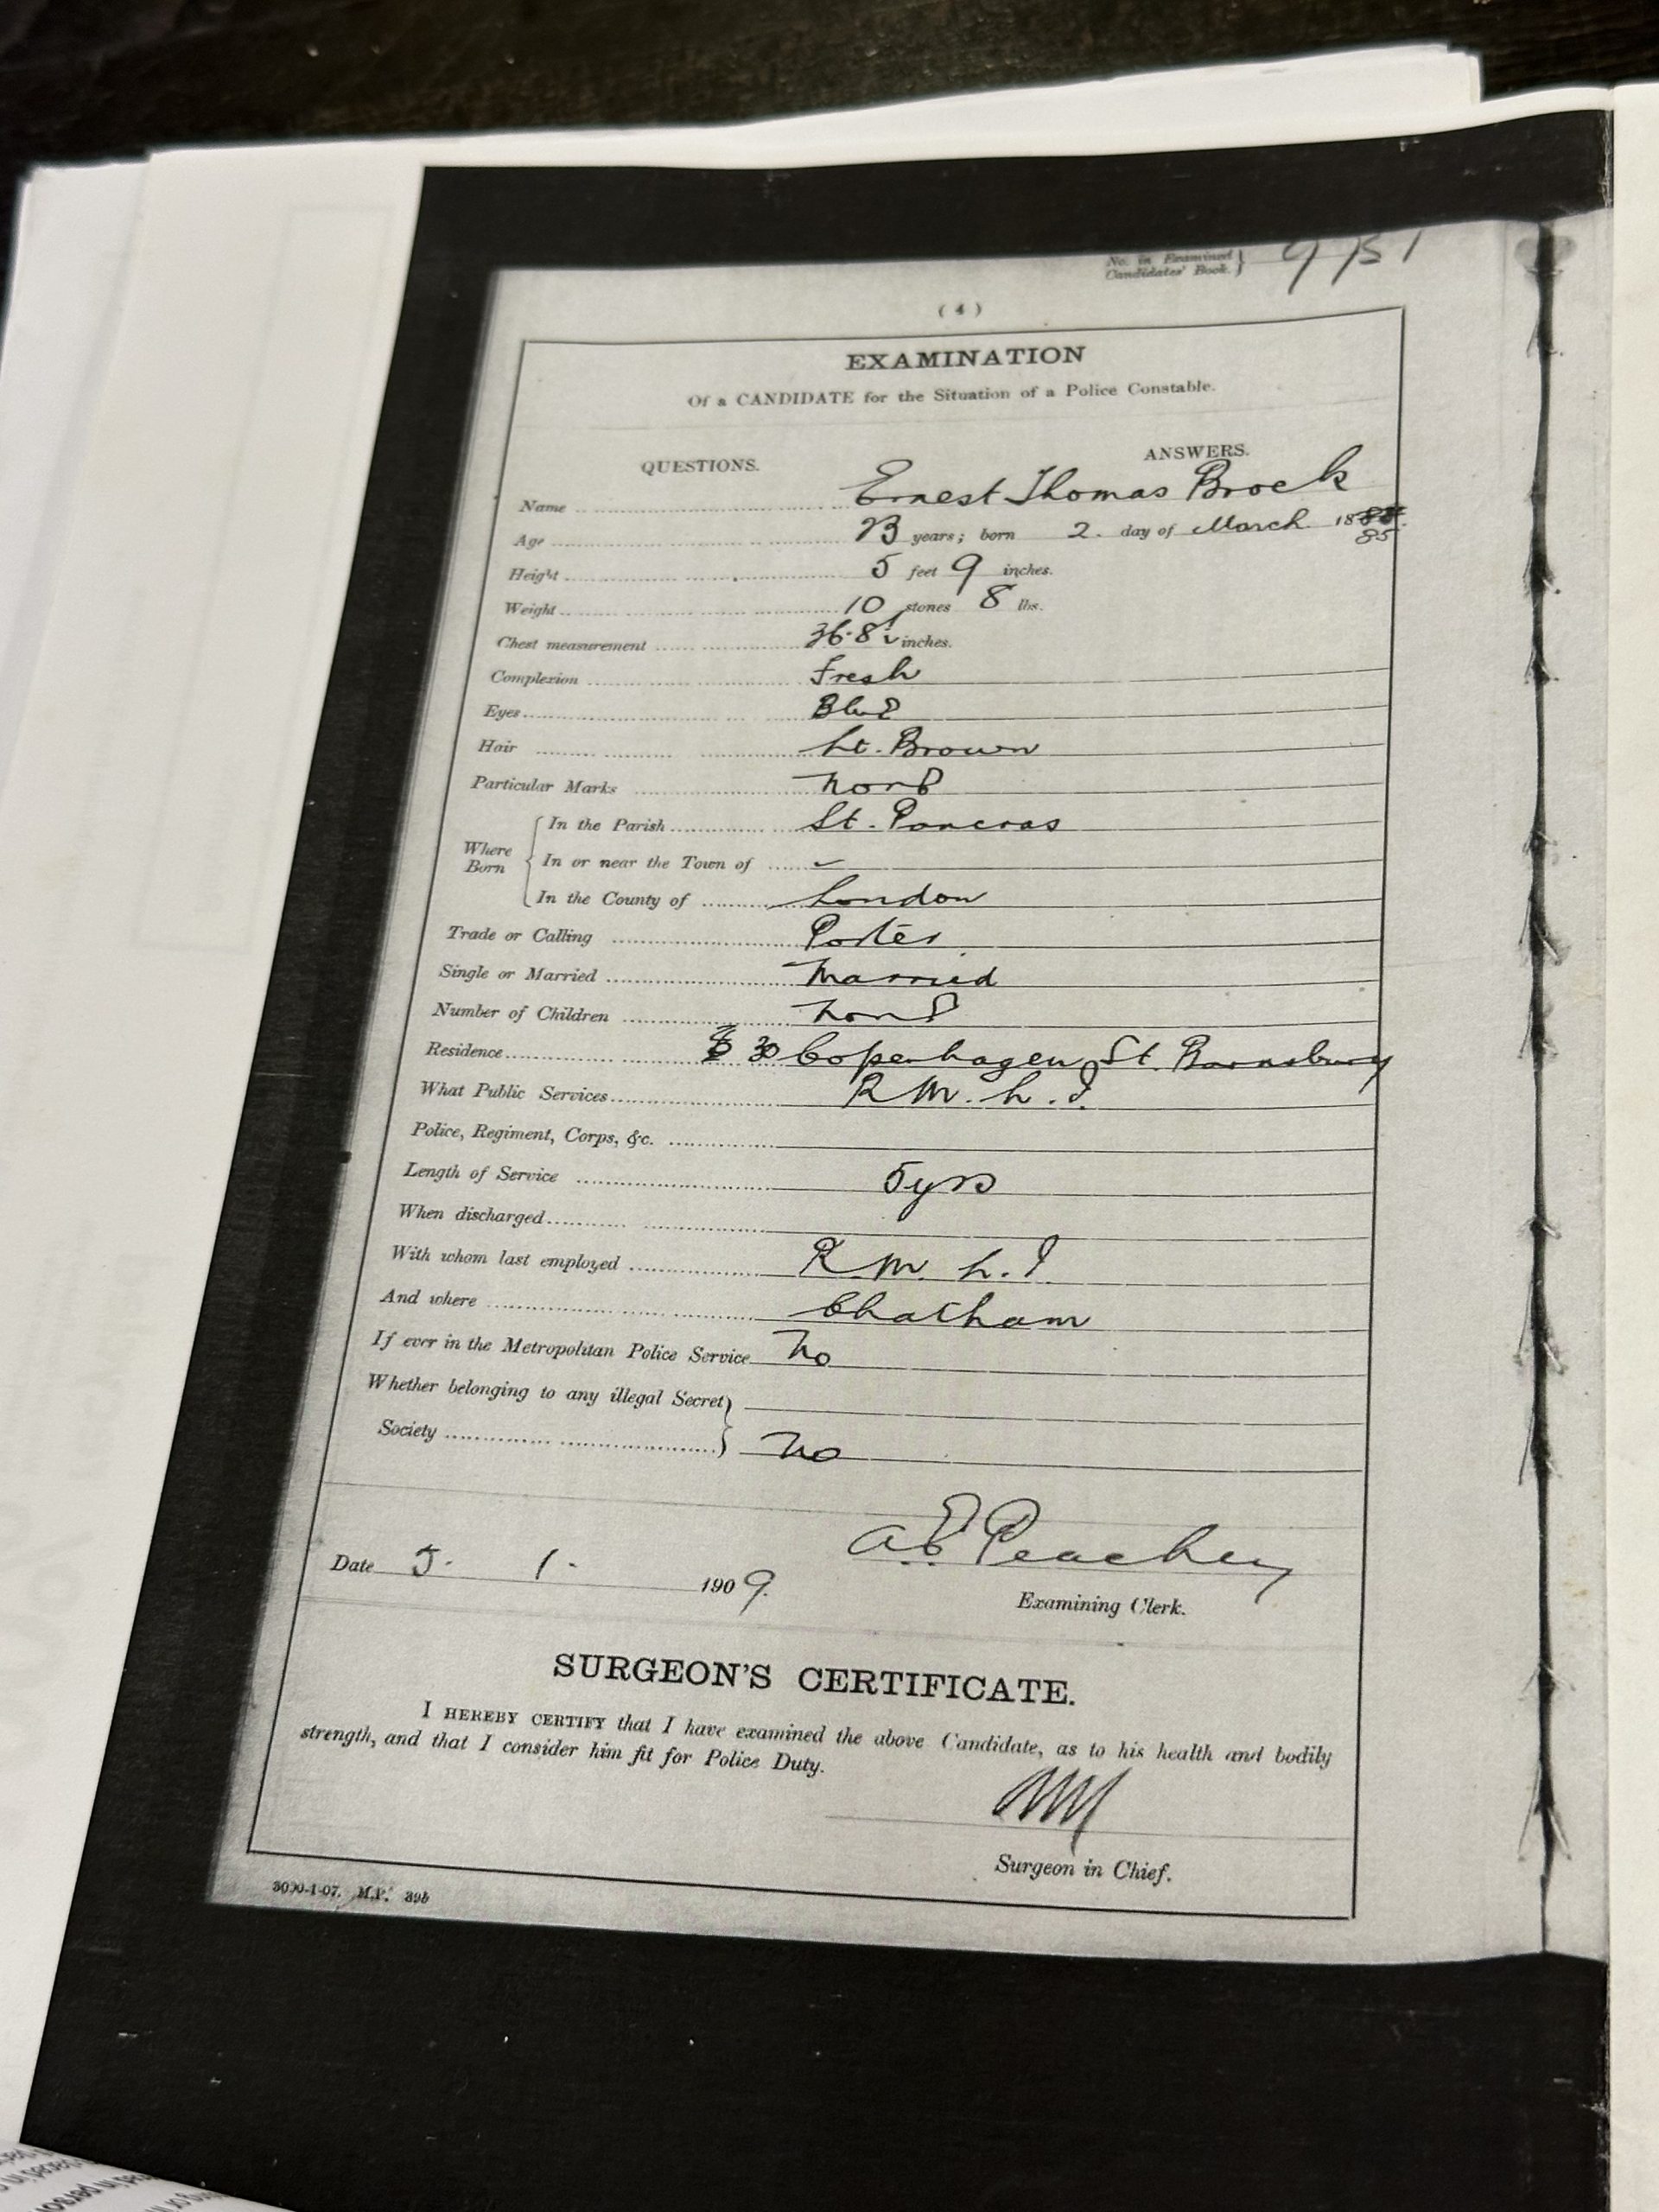 No. in Examined
Candidates' Book. } 9751
( 4 )
EXAMINATION
Of a CANDIDATE for the Situation of a Police Constable.
QUESTIONS. ANSWERS.
Name Ernest Thomas Brock
Age 23 years; born 2. day of March 1885
Height 5 feet 9 inches.
Weight 10 stones 8 lbs.
Chest measurement inches.
Complexion Fresh
Eyes Blue
Hair Lt. Brown
Particular Marks None
Where Born { In the Parish St. Pancras
In or near the Town of
In the County of London
Trade or Calling Porter
Single or Married Married
Number of Children None
Residence 30 Copenhagen St. Barnsbury
What Public Services R M. L. I.
Police, Regiment, Corps, &c.
Length of Service 5 yrs
When discharged
With whom last employed R. M. L. I.
And where Chatham
If ever in the Metropolitan Police Service No
Whether belonging to any illegal Secret }
Society } No
A E Peachey
Date 5. 1. 1909.
Examining Clerk.
SURGEON'S CERTIFICATE.
I HEREBY CERTIFY that I have examined the above Candidate, as to his health and bodily
strength, and that I consider him fit for Police Duty.
Surgeon in Chief.
3000-1-07. M.P. 39b